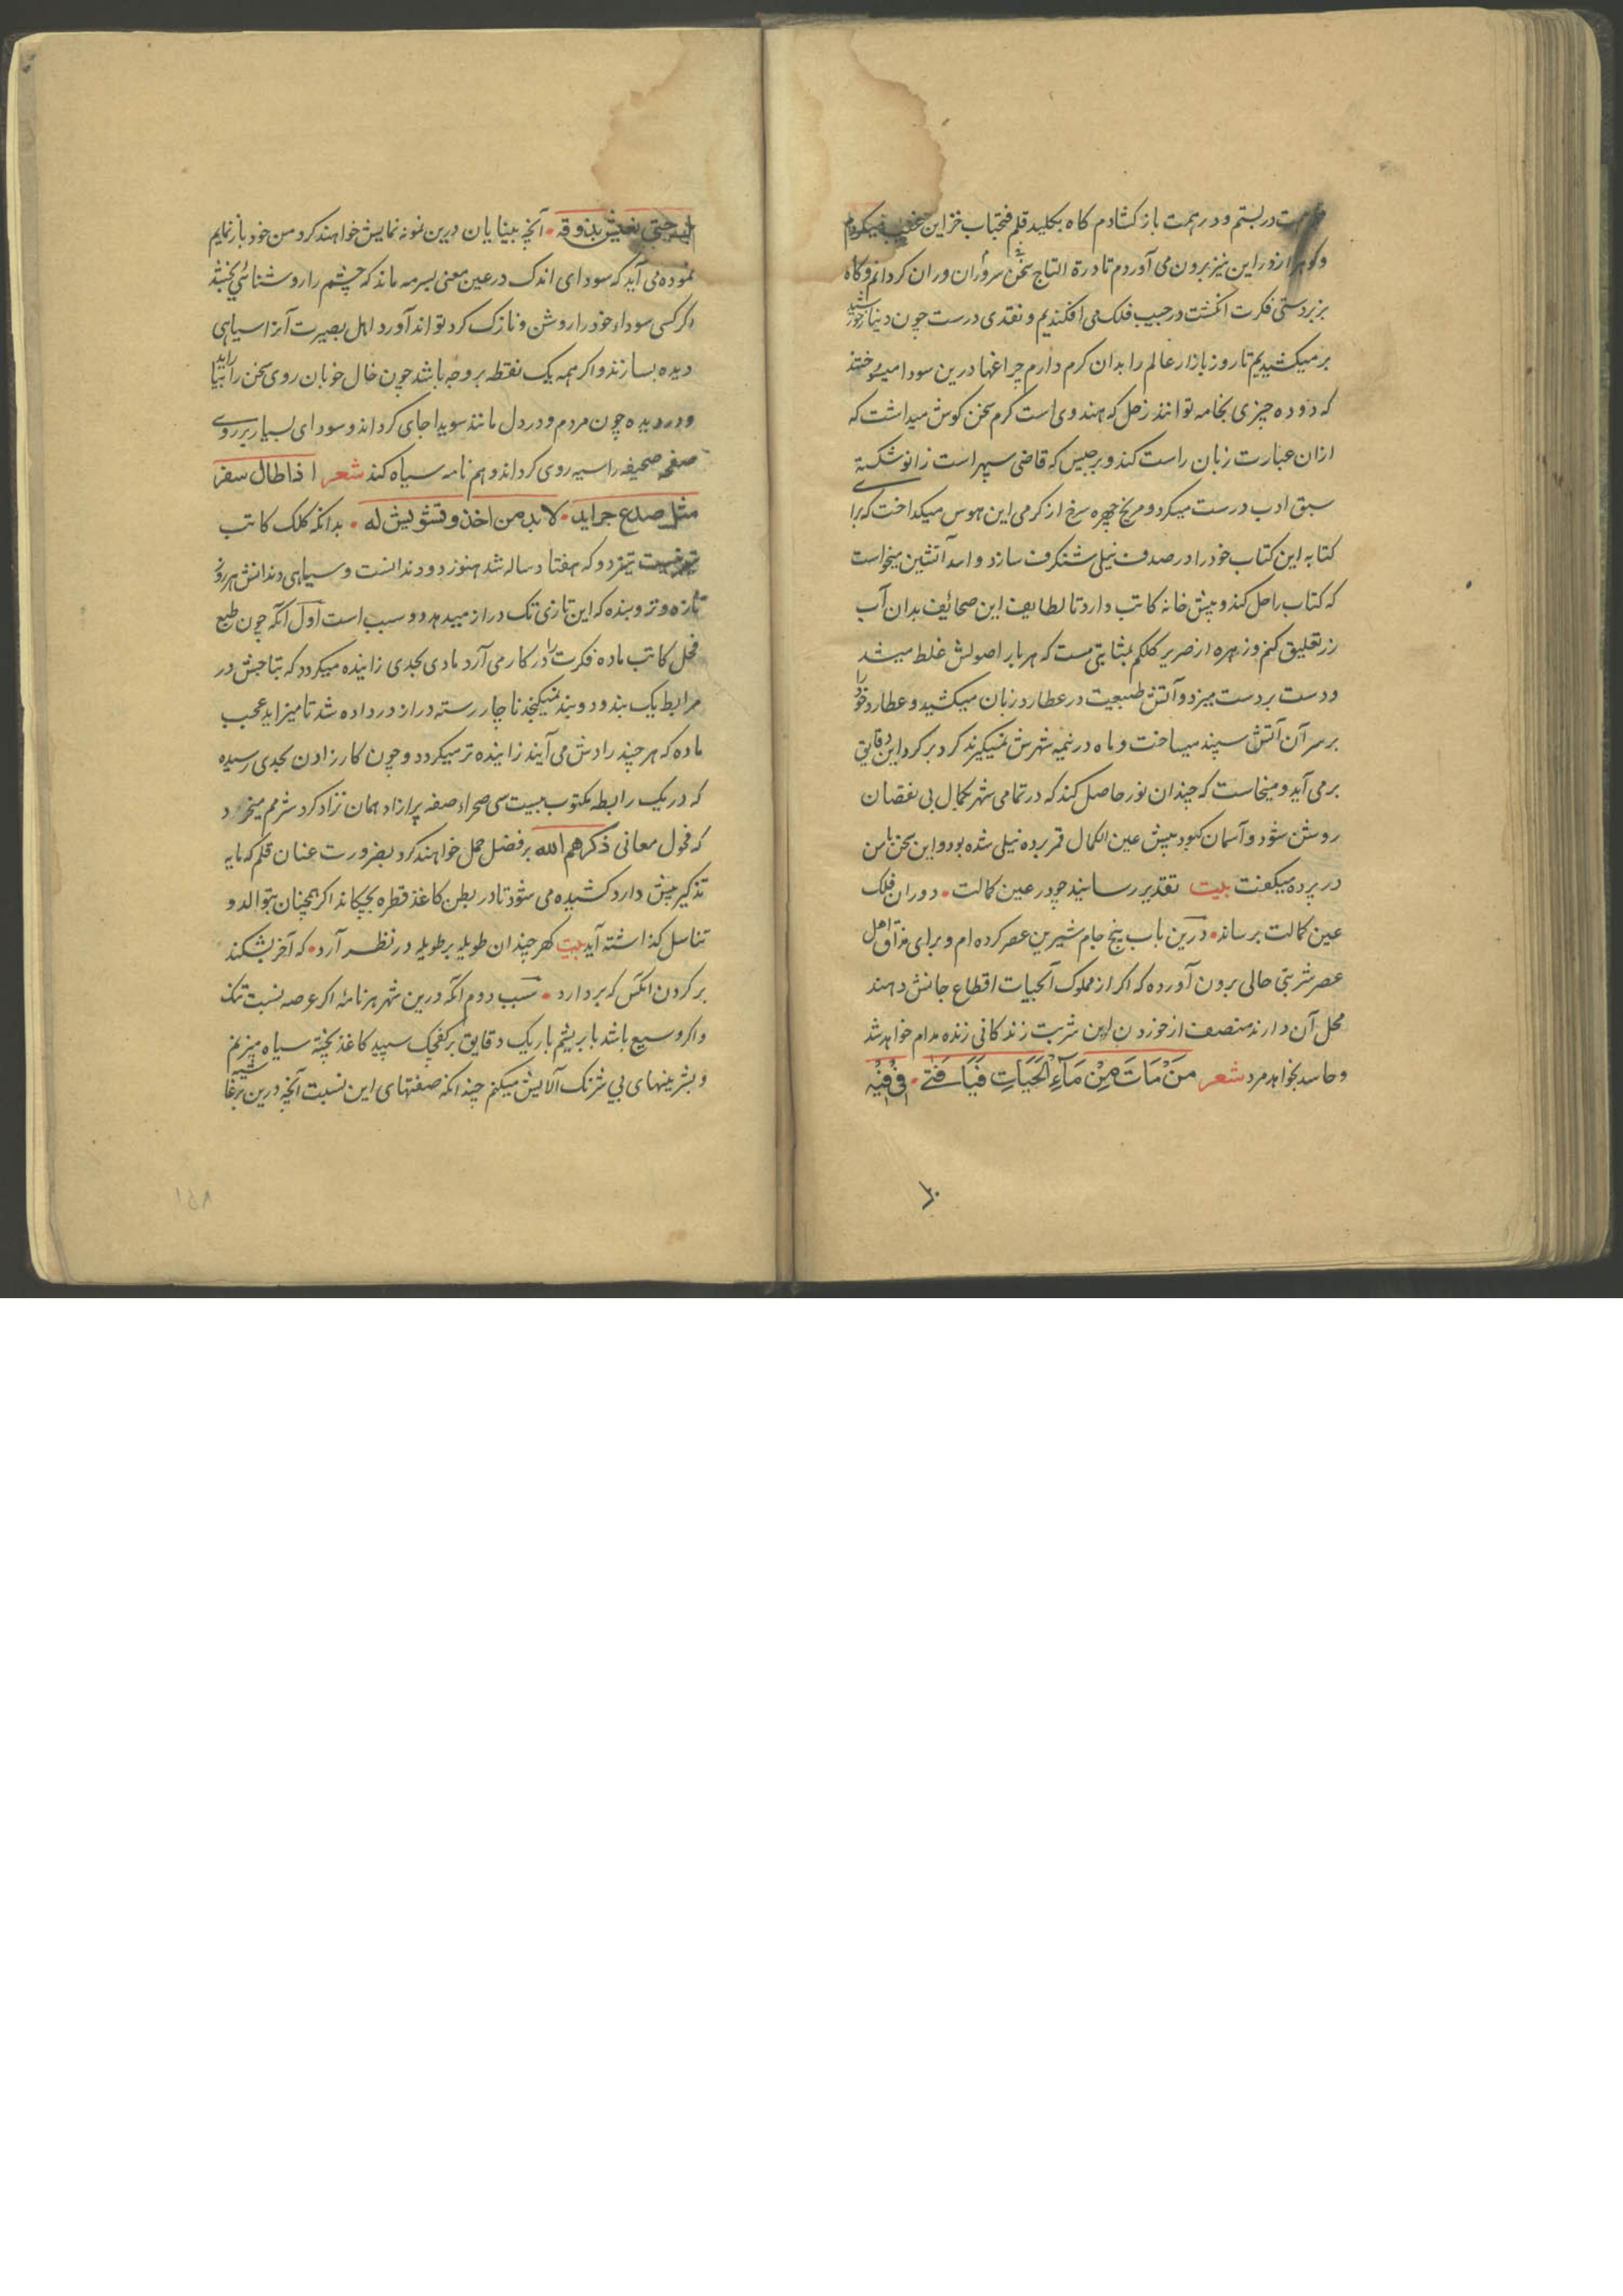 در بستم و در همت باز کشادم کاه بکلید قلم فتحباب خزاین
و کوهر از وراین نیز برون می آوردم تا درة التاج سخن سروران وران کردانم و کاه
بزبردستی فکرت انکشت در جیب فلک می افکندیم و نقدی درست چون دنیار خورشید
بر میکشیدیم تا روز بازار عالم را بدان کرم دارم چراغها درین سودا میسوختند
که دوده چیزی بخامه تواند زحل که هندوی است کرم سخن کوش میداشت که
ازان عبارت زبان راست کند و برجیس که قاضی سپهر است زانو شکسته
سبق ادب درست میکرد و مریخ چهره سرخ از کرمی این هوس میکداخت که برا
کتابه این کتاب خود را در صدف نیلی شنکرف سازد و اسد آتشین میخواست
که کتاب را حل کند و پیش خانه کاتب دارد تا لطایف این صحائف بدان آب
زر تعلیق کنم و زهره از صریر کلکم بمثابتی مست که هر بار اصولش غلط میشد
و دست بر دست میزد و آتش طبیعت در عطارد زبان میکشید و عطارد خود را
بر سر آن آتش سپند میساخت و ماه در نیمه شهرش نمیکیرند کرد بر کرد این دقایق
بر می آید و میخاست که چندان نور حاصل کند که در تمامی شهر بکمال بی نقصان
روشن شود و آسمان کبود پیش عین الکمال قمر پرده نیلی شده بود و این سخن با من
در پرده میکفت بیت تقدیر رسانید چو در عین کمالت • دوران فلک
عین کمالت برساند • درین باب پنج جام شیرین عصر کرده ام و برای مذاق اهل
عصر شربتی حالی برون آورده که اکر از مملوک آلحیات اقطاع جانش دهند
محل آن دارند منصف از خوردن این شربت زندکانی زنده مدام خواهد شد
و حاسد بخواهد مرد شعر مَنْ مَاتَ مِنْ مَآءِ الْحَیَاتِ فَیَا فَتے •
آنچه بینایان درین نمونه نمایش خواهند کرد من خود باز نمایم
نموده می آید که سودای اندک در عین معنی بسرمه ماند که چشم را روشنائی بخشد
اکر کسی سوداء خود را روشن و نازک کرد تواند آورد اهل بصیرت آنرا سیاهی
دیده بسازند و اکر همه یک نقطه بر وجه باشد چون خال خوبان روی سخن را
و در دیده چون مردم و در دل مانند سویدا جای کرداند و سودای بسیار بر روے
صفحه صحیفه را سیه روی کرداند و هم نامه سیاه کند شعر اذا طال سفر
مثل صدع جراید • لا بد من اخذ و تشویش له • بدانکه کلک کاتب
که هفتاد ساله شد هنوز دو دندانست و سیاهی دندانش هر روز
تازه و تر و بنده که این تازی تک دراز میدهد دو سبب است اول آنکه چون طبع
فحل کاتب ماده فکرت را در کار می آرد مادی بحدی زاینده میکردد که نتاجش در
مرابط یک بند و دو بند نمیکنجد ناچار رسته دراز در داده شد تا میزاید عجب
ماده که هر چند رادش می آیند زاینده تر میکردد و چون کار زادن بحدی رسیده
که در یک رابطه مکتوب بیست سی صحراء صفه پر ازاد همان نژاد کرد شرمم میخورد
که فحول معانی ذکرهم الله بر فضل حمل خواهند کرد بضرورت عنان قلم که مایه
تذکیر پیش دارد کشیده می شود تا در بطن کاغذ قطره بچکاند اکر همچنان بتوالد و
تناسل کذاشته آید بیت کهر چندان طویله بر طویله در نظر آرد • که آخر بشکند
بر کردن آنکس که بردارد • سبب دوم آنکه درین شهر هر نامهٔ اکر عرصه نسبت تنک
و اکر وسیع باشد با بریشم باریک دقایق بر کفچک سپید کاغذ پخته سیاه میزنم
آلایش میکنم چندانکه صفتهای این نسبت آنچه درین